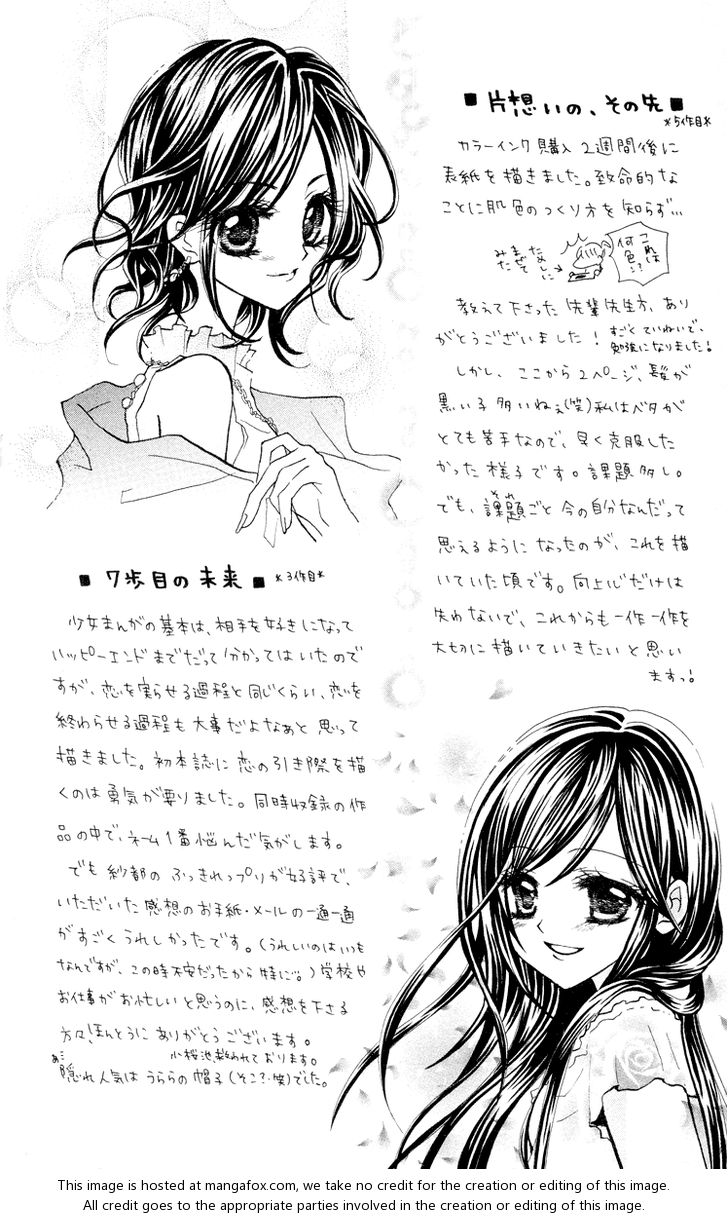 ■ 片想いの、その先 ■
*5作目*
カラーインク購入2週間後に
表紙を描きました。致命的な
ことに肌色のつくり方を知らず…
みませて
なしに
肌は
何色!?
教えて下さった先輩先生方、あり
がとうございました!
すごくていねいで、
勉強になりました!
しかし、ここから2ページ、髪が
黒い子多いねぇ(笑)私はベタが
とても苦手なので、早く克服した
かった様子です。課題多し。
でも、課題ごと今の自分なんだって
思えるようになったのが、これを描
いていた頃です。向上心だけは
失わないで、これからも一作一作を
大切に描いていきたいと思い
ますっ!
■ 7歩目の未来 ■
*3作目*
少女まんがの基本は、相手を好きになって
ハッピーエンドまでだって分かってはいたので
すが、恋を実らせる過程と同じくらい、恋を
終わらせる過程も大事だよなぁと思って
描きました。初本誌に恋の引き際を描
くのは勇気が要りました。同時収録の作
品の中で、ネーム1番悩んだ気がします。
でも紗都のふっきれっプリが好評で、
いただいた感想のお手紙・メールの一通一通
がすごくうれしかったです。(うれしいのはいつも
なんですが、この時不安だったから特に。)学校や
お仕事がお忙しいと思うのに、感想を下さる
方々、ほんとうにありがとうございます。
小桜池救われております。
隠れ人気はうららの帽子(そこ?・笑)でした。
This image is hosted at mangafox.com, we take no credit for the creation or editing of this image.
All credit goes to the appropriate parties involved in the creation or editing of this image.